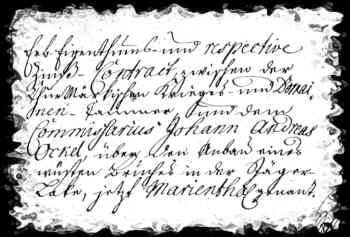 Erb-Eigenthums- und respective
Zinß-Contract, zwischen der
Chur Märkischen Krieges- und Domai,,
nen-Cammer und dem
Commissarius Johann Andreas
Ockel, über den Anbau eines
wüsten Bruches in der Jäger-
Lake, jetzt Marienthal genant.